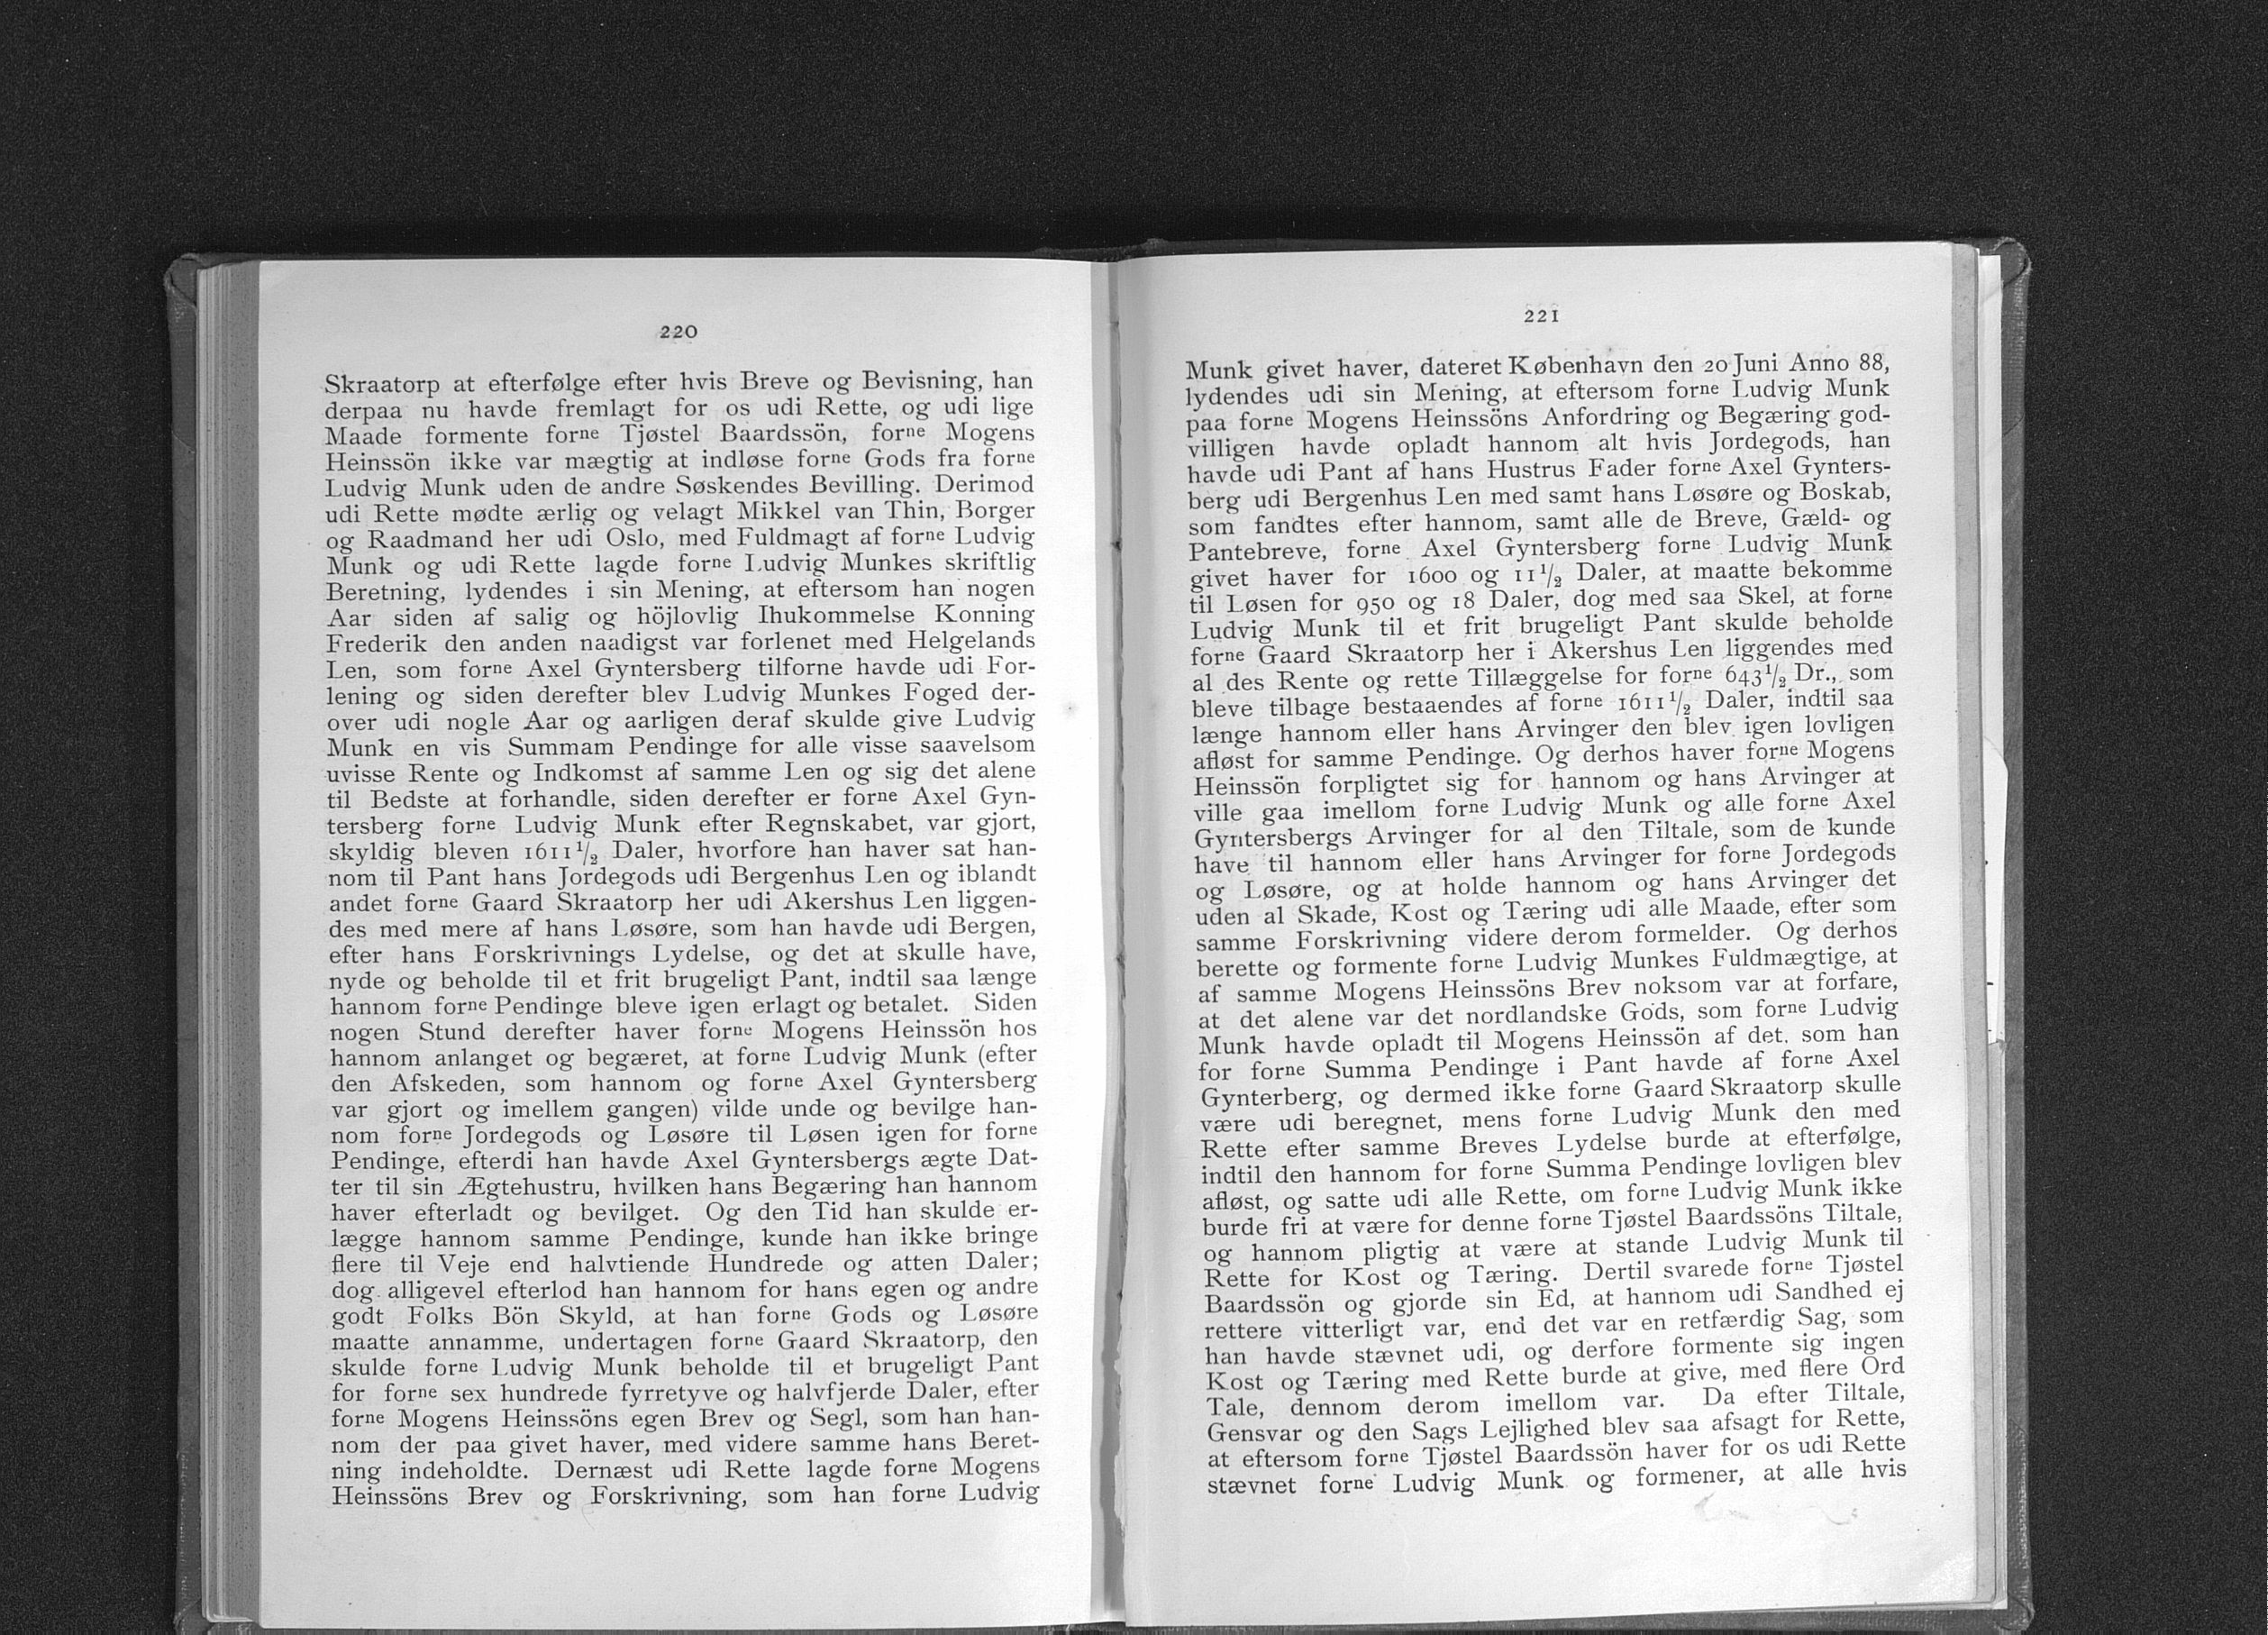 220
Skraatorp at efterfølge efter hvis Breve og Bevisning, han
derpaa nu havde fremlagt for os udi Rette, og udi lige
Maade formente forne Tjøstel Baardssön, forne Mogens
Heinssön ikke var mægtig at indløse forne Gods fra forne
Ludvig Munk uden de andre Søskendes Bevilling. Derimod
udi Rette mødte ærlig og velagt Mikkel van Thin, Borger
og Raadmand her udi Oslo, med Fuldmagt af forne Ludvig
Munk og udi Rette lagde forne Ludvig Munkes skriftlig
Beretning, lydendes i sin Mening, at eftersom han nogen
Aar siden af salig og höjlovlig Ihukommelse Konning
Frederik den anden naadigst var forlenet med Helgelands
Len, som forne Axel Gyntersberg tilforne havde udi For-
lening og siden derefter blev Ludvig Munkes Foged der-
over udi nogle Aar og aarligen deraf skulde give Ludvig
Munk en vis Summam Pendinge for alle visse saavelsom
uvisse Rente og Indkomst af samme Len og sig det alene
til Bedste at forhandle, siden derefter er forne Axel Gyn-
tersberg forne Ludvig Munk efter Regnskabet, var gjort,
skyldig bleven 1611½ Daler, hvorfore han haver sat han-
nom til Pant hans Jordegods udi Bergenhus Len og iblandt
andet forne Gaard Skraatorp her udi Akershus Len liggen-
des med mere af hans Løsøre, som han havde udi Bergen,
efter hans Forskrivnings Lydelse, og det at skulle have,
nyde og beholde til et frit brugeligt Pant, indtil saa længe
hannom forne Pendinge bleve igen erlagt og betalet. Siden
nogen Stund derefter haver forne Mogens Heinssön hos
hannom anlanget og begæret, at forne Ludvig Munk (efter
den Afskeden, som hannom og forne Axel Gyntersberg
var gjort og imellem gangen) vilde unde og bevilge han-
nom forne Jordegods og Løsøre til Løsen igen for forne
Pendinge, efterdi han havde Axel Gyntersbergs ægte Dat-
ter til sin Ægtehustru, hvilken hans Begæring han hannom
haver efterladt og bevilget. Og den Tid han skulde er-
lægge hannom samme Pendinge, kunde han ikke bringe
flere til Veje end halvtiende Hundrede og atten Daler;
dog alligevel efterlod han hannom for hans egen og andre
godt Folks Bön Skyld, at han forne Gods og Løsøre
maatte annamme, undertagen forne Gaard Skraatorp, den
skulde forne Ludvig Munk beholde til et brugeligt Pant
for forne sex hundrede fyrretyve og halvfjerde Daler, efter
forne Mogens Heinssöns egen Brev og Segl, som han han-
nom der paa givet haver, med videre samme hans Beret-
ning indeholdte. Dernæst udi Rette lagde forne Mogens
Heinssöns Brev og Forskrivning, som han forne Ludvig
221
Munk givet haver, dateret København den 20 Juni Anno 88,
lydendes udi sin Mening, at eftersom forne Ludvig Munk
paa forne Mogens Heinssöns Anfordring og Begæring god-
villigen havde opladt hannom alt hvis Jordegods, han
havde udi Pant af hans Hustrus Fader forne Axel Gynters-
berg udi Bergenhus Len med samt hans Løsøre og Boskab,
som fandtes efter hannom, samt alle de Breve, Gæld- og
Pantebreve, forne Axel Gyntersberg forne Ludvig Munk
givet haver for 1600 og 11½ Daler, at maatte bekomme
til Løsen for 950 og 18 Daler, dog med saa Skel, at forne
Ludvig Munk til et frit brugeligt Pant skulde beholde
forne Gaard Skraatorp her i Akershus Len liggendes med
al des Rente og rette Tillæggelse for forne 643½ Dr., som
bleve tilbage bestaaendes af forne 1611½ Daler, indtil saa
længe hannom eller hans Arvinger den blev igen lovligen
afløst for samme Pendinge. Og derhos haver forne Mogens
Heinssön forpligtet sig for hannom og hans Arvinger at
ville gaa imellom forne Ludvig Munk og alle forne Axel
Gyntersbergs Arvinger for al den Tiltale, som de kunde
have til hannom eller hans Arvinger for forne Jordegods
og Løsøre, og at holde hannom og hans Arvinger det
uden al Skade, Kost og Tæring udi alle Maade, efter som
samme Forskrivning videre derom formelder. Og derhos
berette og formente forne Ludvig Munkes Fuldmægtige, at
af samme Mogens Heinssöns Brev noksom var at forfare,
at det alene var det nordlandske Gods, som forne Ludvig
Munk havde opladt til Mogens Heinssön af det, som han
for forne Summa Pendinge i Pant havde af forne Axel
Gynterberg, og dermed ikke forne Gaard Skraatorp skulle
være udi beregnet, mens forne Ludvig Munk den med
Rette efter samme Breves Lydelse burde at efterfølge,
indtil den hannom for forne Summa Pendinge lovligen blev
afløst, og satte udi alle Rette, om forne Ludvig Munk ikke
burde fri at være for denne forne Tjøstel Baardssöns Tiltale,
og hannom pligtig at være at stande Ludvig Munk til
Rette for Kost og Tæring. Dertil svarede forne Tjøstel
Baardssön og gjorde sin Ed, at hannom udi Sandhed ej
rettere vitterligt var, end det var en retfærdig Sag, som
han havde stævnet udi, og derfore formente sig ingen
Kost og Tæring med Rette burde at give, med flere Ord
Tale, dennom derom imellom var. Da efter Tiltale,
Gensvar og den Sags Lejlighed blev saa afsagt for Rette,
at eftersom forne Tjøstel Baardssön haver for os udi Rette
stævnet forne Ludvig Munk og formener, at alle hvis